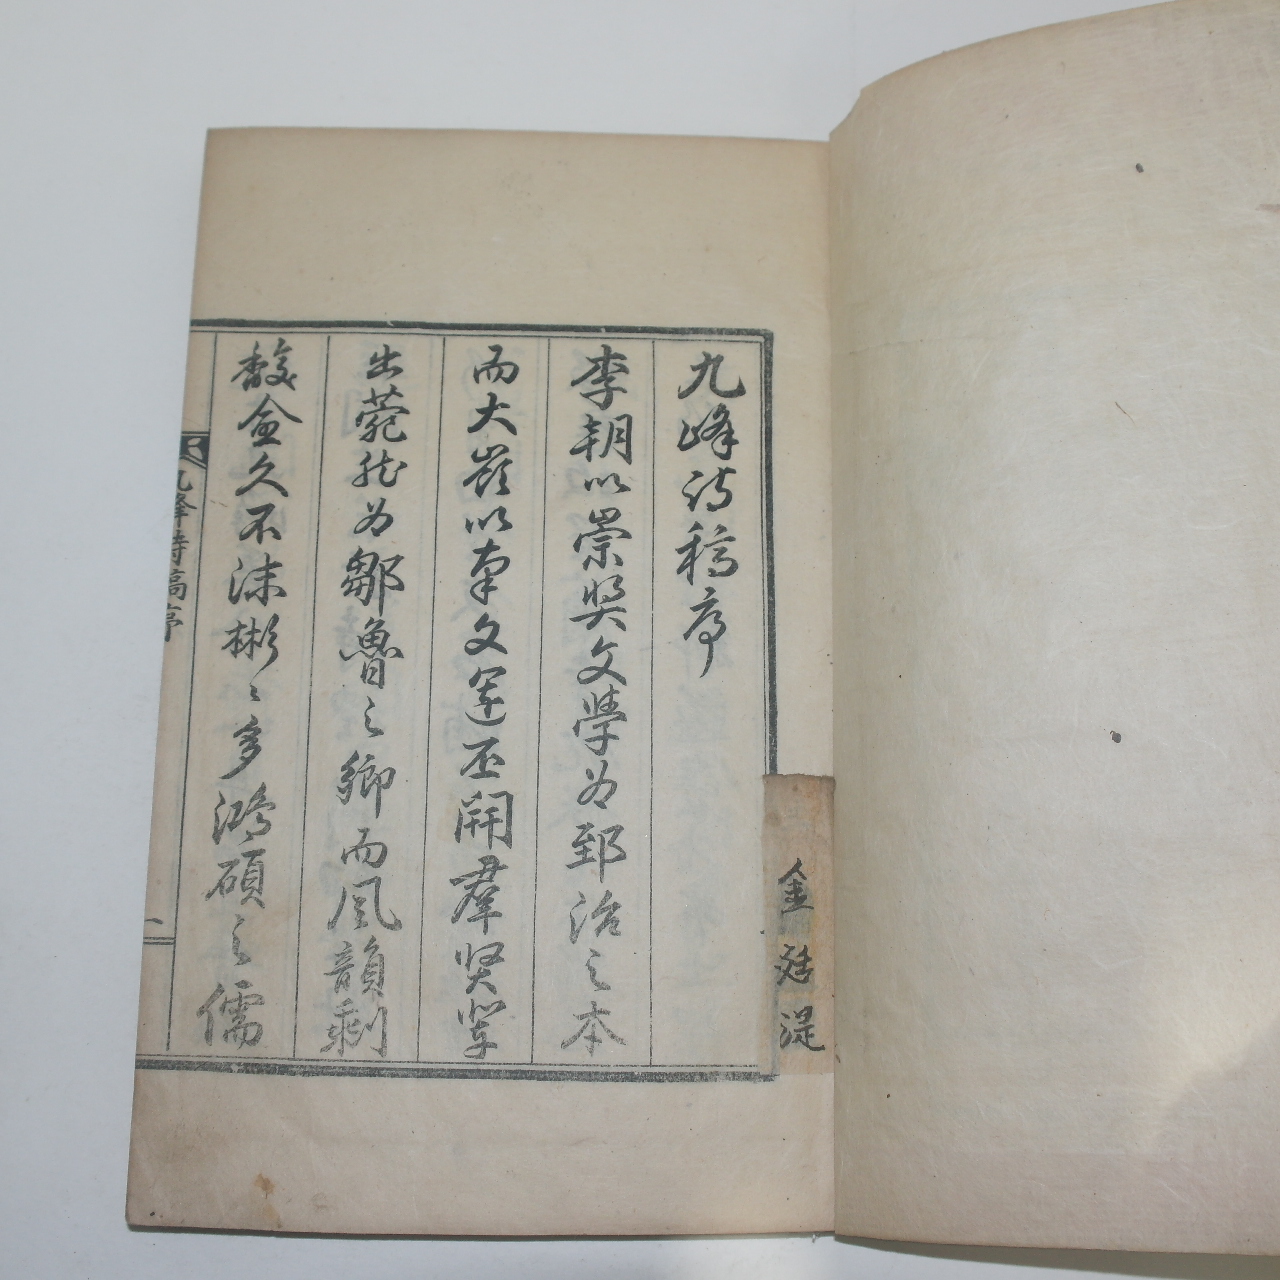 九峰詩稿序
李朝以崇奬文學爲郅治之本
而大嶺以南文運丕開羣賢輩
出菀然爲鄒魯之鄕而風韻剩
馥愈久不沬彬〻多鴻碩之儒
九峰詩稿序
一
金
湜